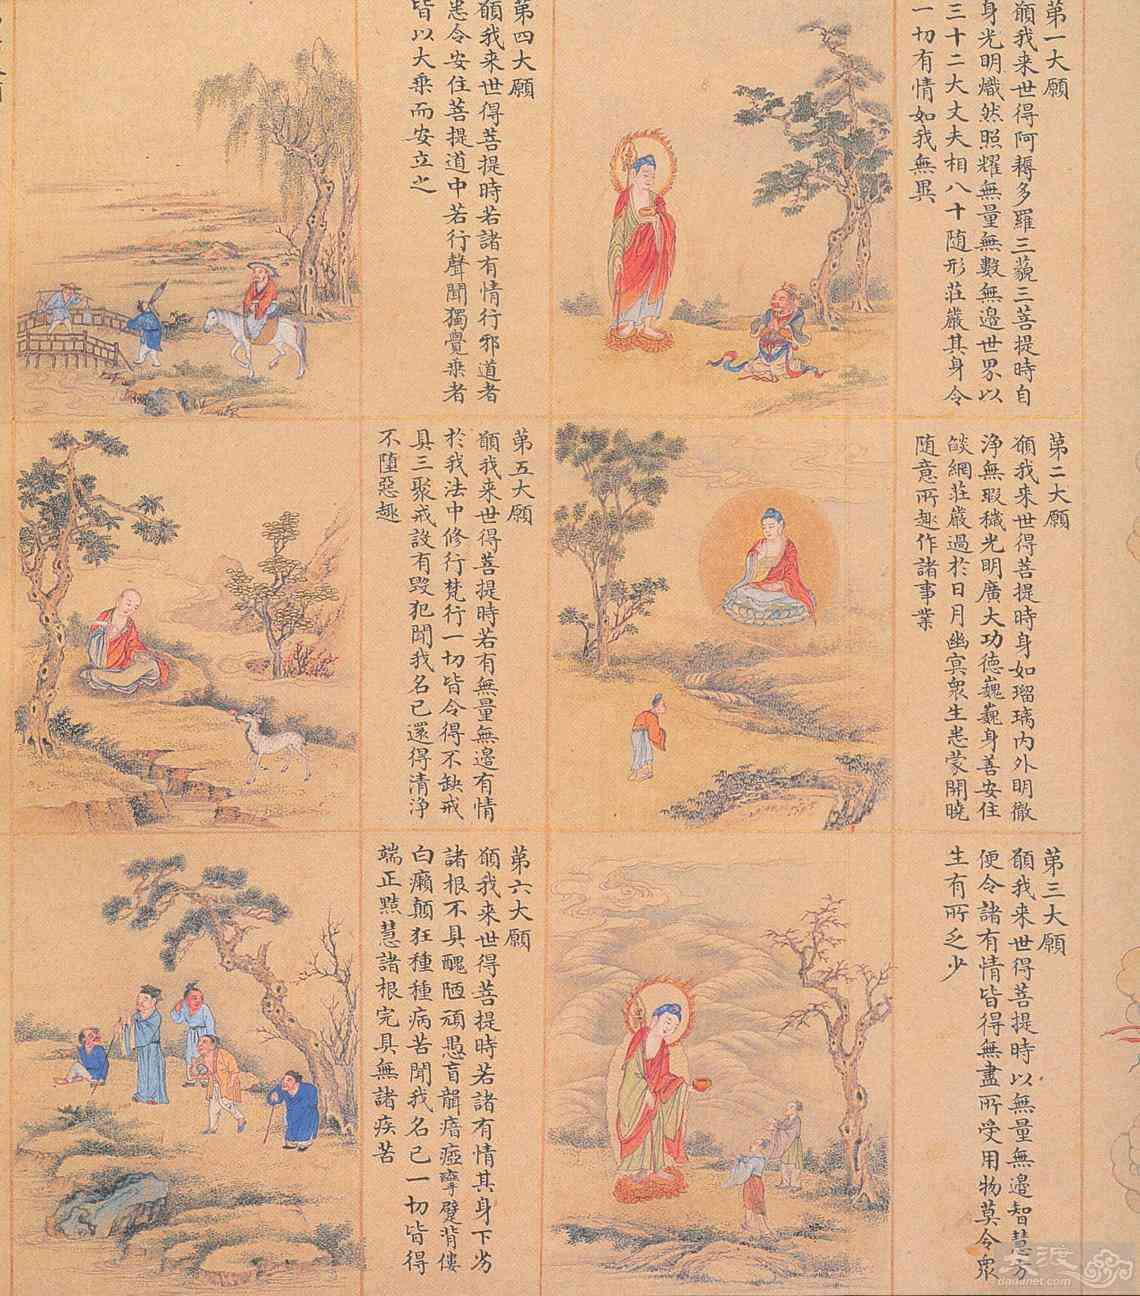 第一大願
願我来世得阿耨多羅三藐三菩提時自
身光明熾然照耀無量無數無邊世界以
三十二大丈夫相八十随形莊嚴其身令
一切有情如我無異
第二大願
願我来世得菩提時身如瑠璃内外明徹
浄無瑕穢光明廣大功徳巍巍身善安住
燄網莊嚴過於日月幽㝠衆生悉蒙開曉
随意所趣作諸事業
第三大願
願我来世得菩提時以無量無邊智慧方
便令諸有情皆得無盡所受用物莫令衆
生有所乏少
第四大願
願我来世得菩提時若諸有情行邪道者
悉令安住菩提道中若行聲聞獨覺乗者
皆以大乗而安立之
第五大願
願我来世得菩提時若有無量無邊有情
於我法中修行梵行一切皆令得不缺戒
具三聚戒設有毀犯聞我名已還得清浄
不墮惡趣
第六大願
願我来世得菩提時若諸有情其身下劣
諸根不具醜陋頑愚盲聾瘖瘂攣躄背僂
白癩顛狂種種病苦聞我名已一切皆得
端正黠慧諸根完具無諸疾苦
dadunet.com